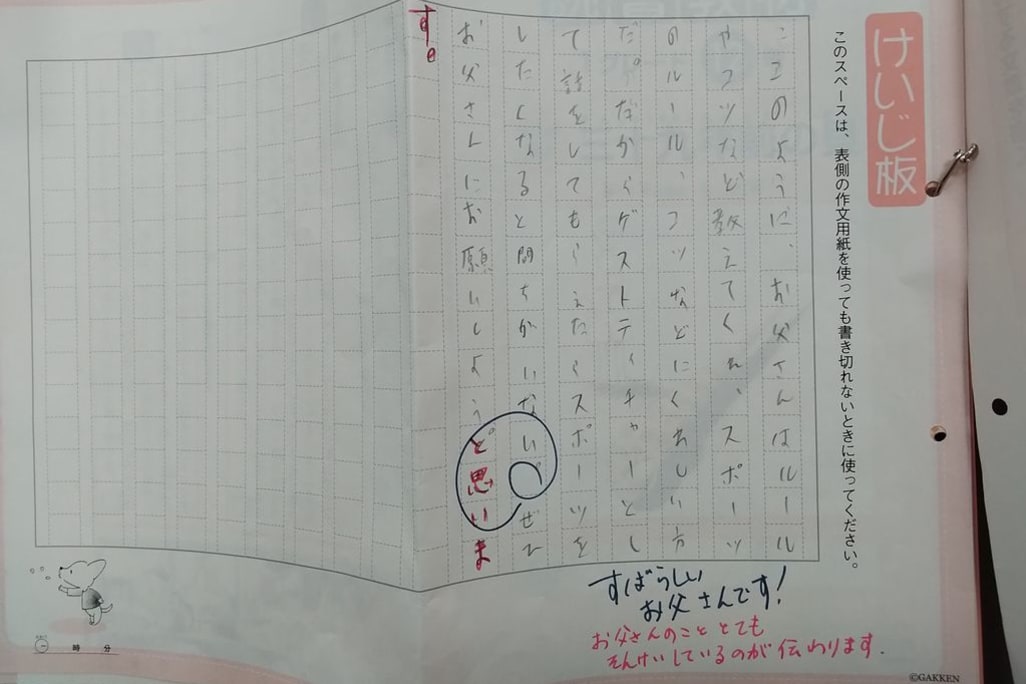 けいじ板
このスペースは、表側の作文用紙を使っても書き切れないときに使ってください。
ここのように、お父さんはルール
やコツなど教えてくれ、スポーツ
のルール、コツなどにくわしい方
だ。だからゲストティーチャーとし
て話をしてもらえたらスポーツを
したくなると間ちがいない。ぜひ
お父さんにお願いしようと思いま
す。
すばらしい
お父さんです!
お父さんのこととても
そんけいしているのが伝わります.
時 分
©GAKKEN